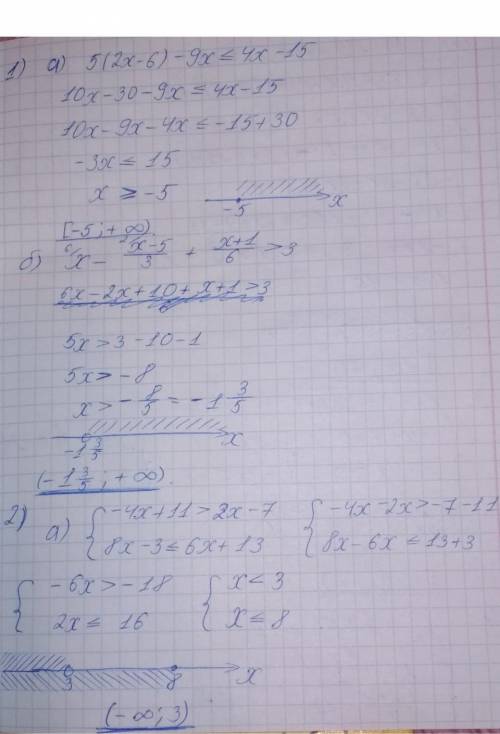 1) а) 5(2x-6)-9x≤4x-15
10x-30-9x≤4x-15
10x-9x-4x≤-15+30
-3x≤15
x≥-5
-5 x
[-5;+∞).
б) ⁶x - ²x-5/3 + x+1/6 >3
6x-2x+10+x+1>3
5x>3-10-1
5x>-8
x>-8/5=-1 3/5
-1 3/5 x
(-1 3/5;+∞).
2) а) {-4x+11>2x-7 {-4x-2x>-7-11
8x-3≤6x+13 8x-6x≤13+3
{-6x>-18 {x<3
2x≤16 x≤8
3 8 x
(-∞;3)